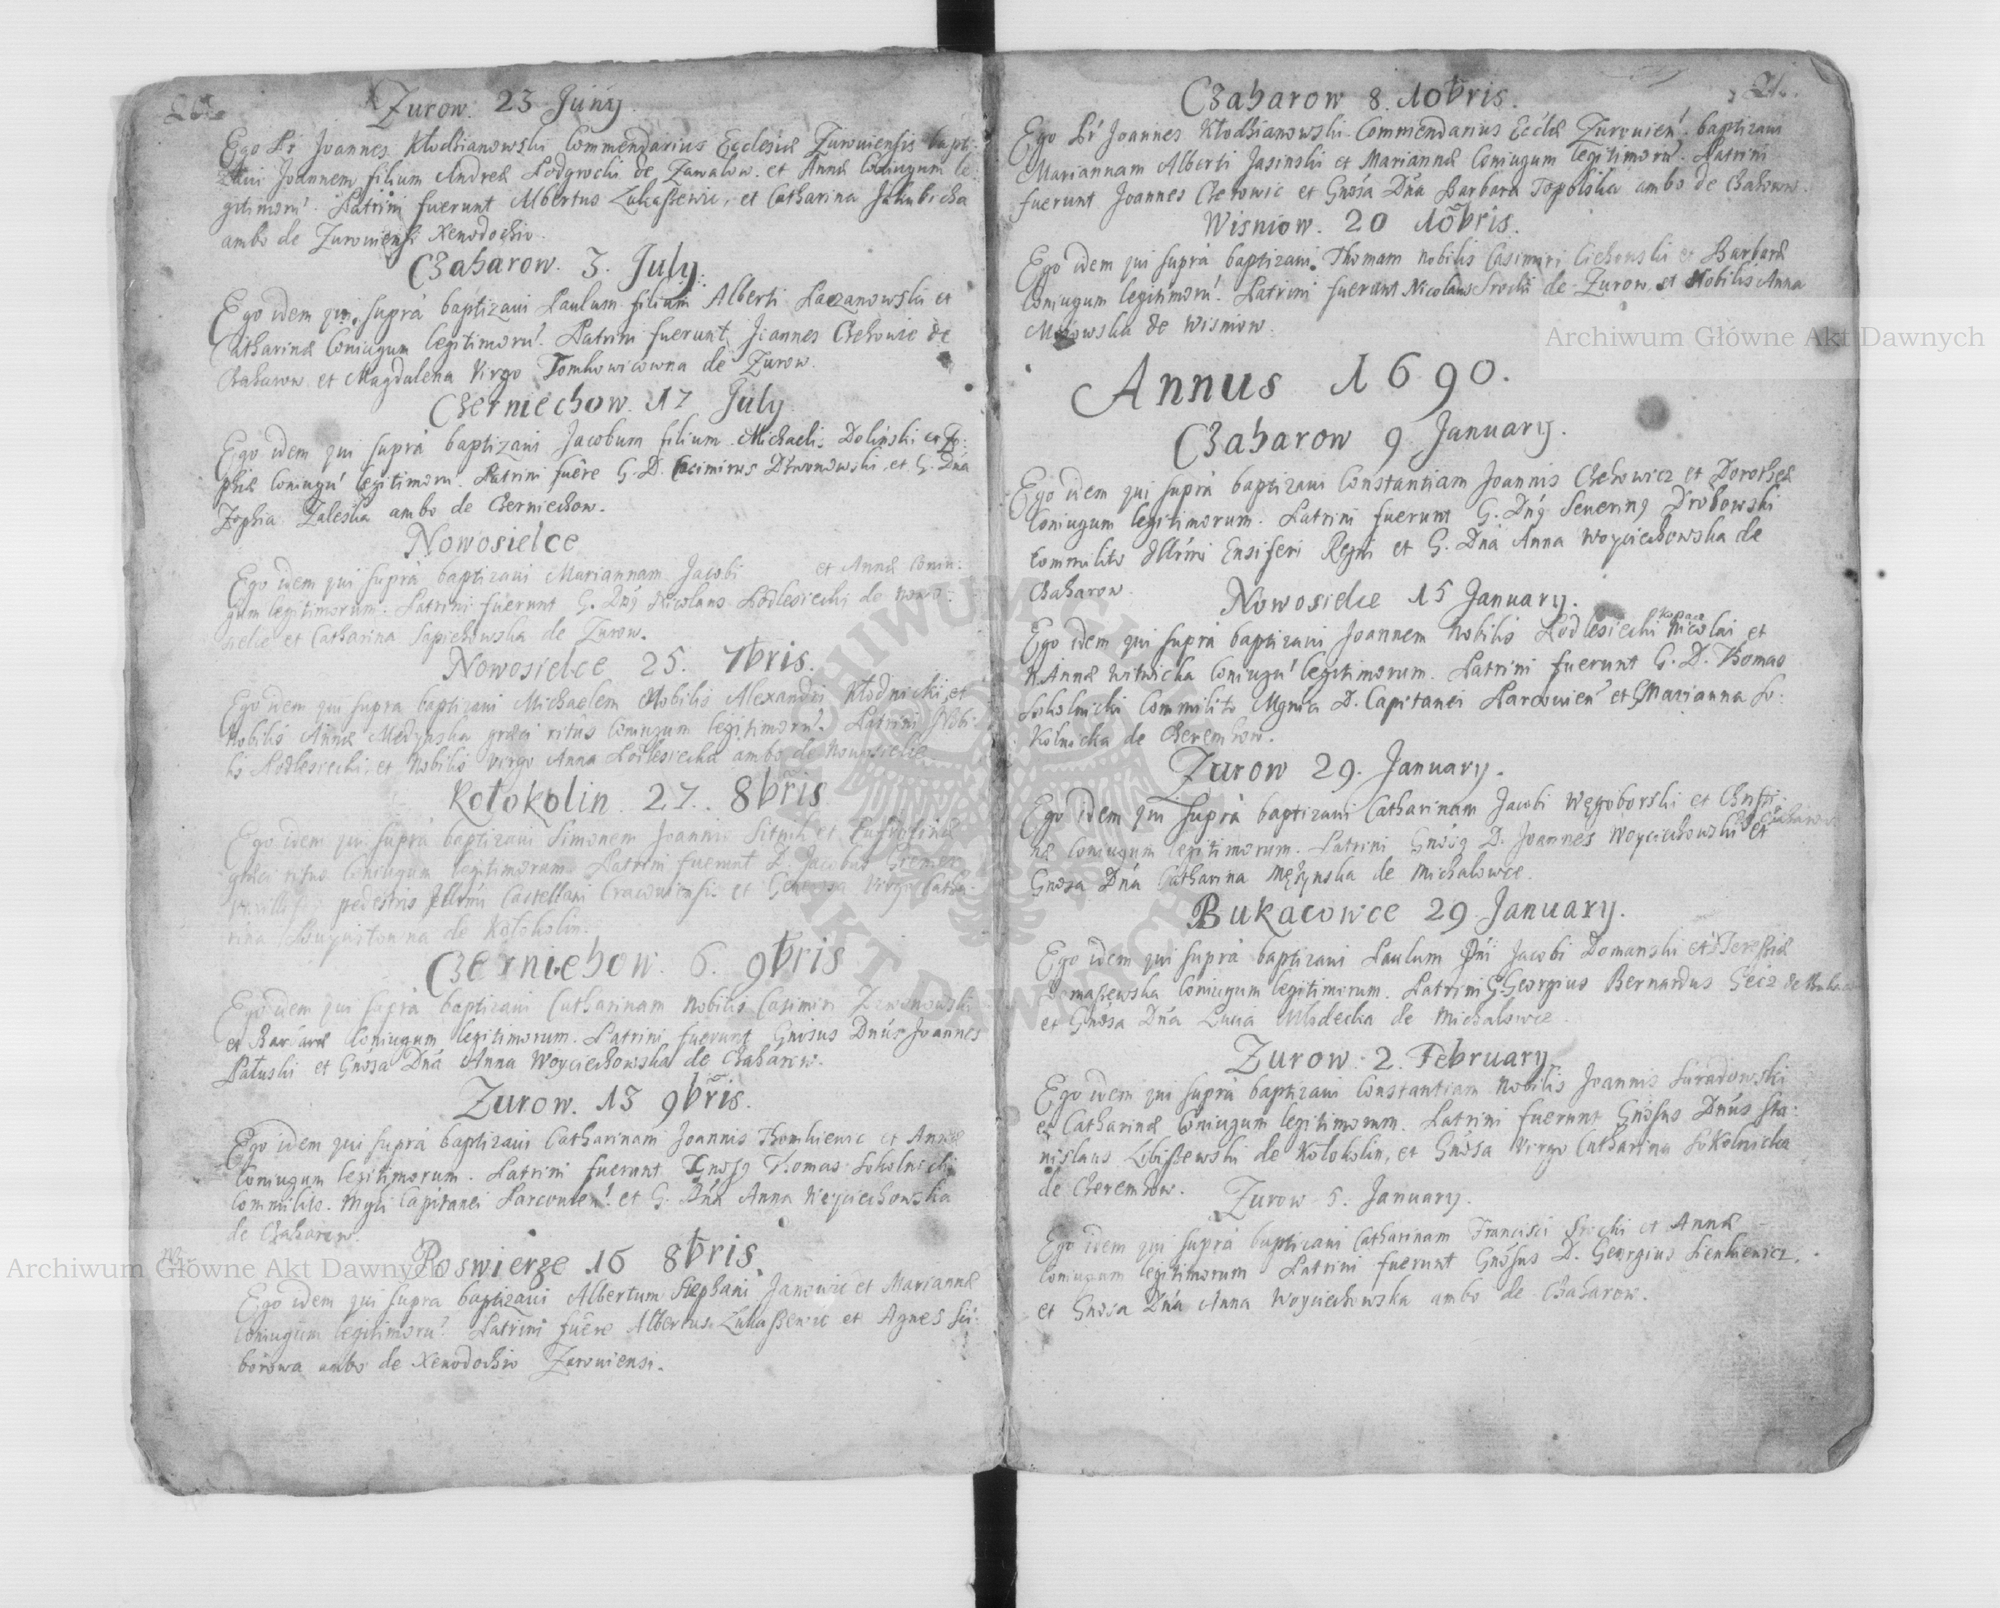 Zurow. 23 Juny.
Ego Pr Joannes Kłodzianowski Commendarius Ecclesiæ Zurouiensis bapti-
zaui Joannem filium Andreæ Podgrocki de Zawałow. et Annæ Coniugum le-
gitimoru. Patrini fuerunt Albertus Lukaszewic, et Catharina Jakubicha
ambo de Zurouiensi Xenodochio.
Czaharow. 3. July.
Ego idem qui suprà baptizaui Paulum filium Alberti et
Catharinæ Coniugum legitimoru. Patrini fuerunt Joannes Chehowic de
Czaharow et Magdalena Virgo Tomkowicowna de Zurow.
Czerniechow. 17 July
Ego idem qui suprà baptizaui Jacobum filium Michaelis Dolinski et Zo-
phiæ Coniugu legitimoru. Patrini fuêre G. D. Casimirus et G. Dna
Zophia Zaleska ambo de Czerniechow.
Nowosielce
Ego idem qui suprà baptizaui Mariannam Jacobi et Annæ Coniu-
gum legitimorum. Patrini fuerunt G. Dnus Nicolaus Podlesiecki de Nowo-
sielce et Catharina Sapiehowska de Zurow.
Nowosielce 25. 7bris.
Ego idem qui supra baptizaui Michaelem Nobilis Alexandri Kłodnicki, et
Nobilis Annæ græci ritûs Coniugum legitimoru. Patrini Nobi-
lis Podlesiecki, et Nobilis Virgo Anna Podlesiecka ambo de Nowosielce.
Kołokolin 27. 8bris
Ego idem qui suprà baptizaui Simonem Joannis et
græci ritus Coniugum legitimorum. Patrini fuerunt D. Jacobus
pedestris Illrmi Castellani Cracouiensis et Generosa Virgo Catha-
rina de Kołokolin.
Czerniehow. 6. 9bris
Ego idem qui suprà baptizaui Catharinam Nobilis Casimiri
et Barbaræ Coniugum legitimorum. Patrini fuerunt Gnosus Dnus Joannes
et Gnosa Dna Anna Woyciechowska de Czaharow.
Zurow. 13 9bris.
Ego idem qui suprà baptizaui Catharinam Joannis Thomkiewic et Annæ
Coniugum legitimorum. Patrini fuerunt Gnosus Thomas Sokolnicki
Commilito. Capitanei et G. Dna Anna Woyciechowska
de Czaharow.
Poswierze 16 8bris.
Ego idem qui supra baptizaui Albertum Stephani Janowic et Mariannæ
Coniugum legitimoru. Patrini fuêre Albertus Lukaszewic et Agnes Sci-
borowa ambo de Xenodochio Zurouiensi.
Czaharow 8. 10bris.
Ego Pr Joannes Kłodzianowski Commendarius Eccłæ Zurouien. baptizaui
Mariannam Alberti Jasinski et Mariannæ Coniugum legitimoru. Patrini
fuerunt Joannes Chehowic et Gnosa Dna Barbara Topolska ambo de Czaharow.
Wisniow. 20 10bris.
Ego idem qui suprà baptizaui Thomam Nobilis Casimiri Cichonski et Barbaræ
Coniugum legitimoru. Patrini fuerunt Nicolaus Srocki de Zurow et Nobilis Anna
de Wisniow.
Annus 1690.
Czaharow 9 January.
Ego idem qui suprà baptizaui Constantiam Joannis Chehowicz et Dorotheæ
Coniugum legitimorum. Patrini fuerunt G. Dnus Seuerinus Drobowski
Commilito Illrmi Ensiferi Regni et G. Dna Anna Woyciechowska de
Czaharow.
Nowosielce 15 January.
Ego idem qui suprà baptizaui Joannem Nobilis Podlesiecki Nicolai et
Annæ Witwicka Coniugu legitimorum. Patrini fuerunt G. D. Thomas
Sokolnicki Commilito D. Capitanei et G Marianna So-
kolnicka de Czeremhow.
Zurow 29. January.
Ego idem qui suprà baptizaui Catharinam Jacobi Węgoborski et Christi-
næ Coniugum legitimorum. Patrini Gnosus D. Joannes Woyciechowski de Czaharow et
Gnosa Dna Catharina de Michalowce.
Bukacowce 29 January.
Ego idem qui suprà baptizaui Paulum Dni Jacobi Domanski et Teressiæ
Coniugum legitimorum. Patrini G. Georgius Bernardus
et Gnosa Dna Lucia de Michalowce.
Zurow. 2. February.
Ego idem qui suprà baptizaui Constantiam Nobilis Joannis
et Catharinæ Coniugum legitimorum. Patrini fuerunt Gnosus Dnus Sta-
nislaus de Kołokolin, et Gnosa Virgo Catharina Sokolnicka
de Czeremhow.
Zurow 5. January.
Ego idem qui suprà baptizaui Catharinam Francisci Srocki et Annæ
Coniugum legitimorum Patrini fuerunt Gnosus D. Georgius Sienkiewicz,
et Gnosa Dna Anna Woyciechowska ambo de Czaharow.
Archiwum Główne Akt Dawnych
Archiwum Główne Akt Dawnych